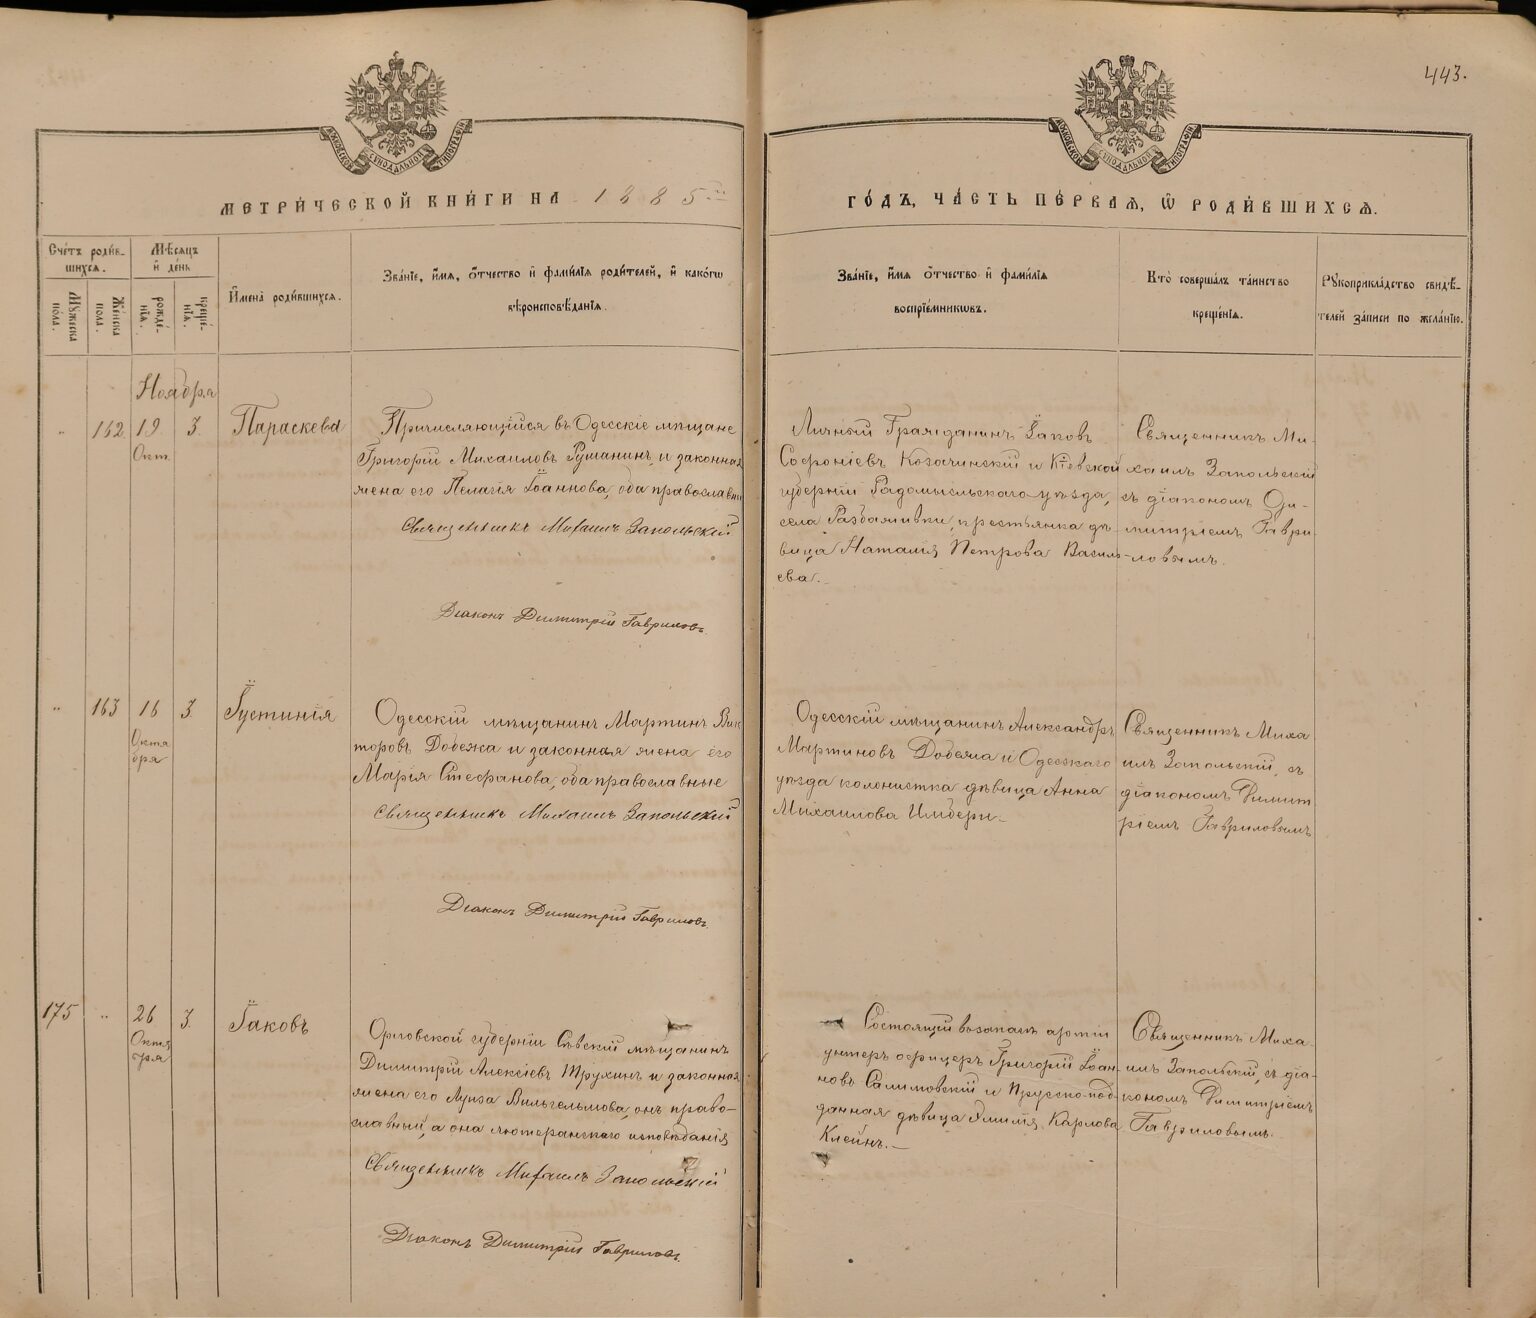 443.
МОСКОВСКОЙ СѴНОДАЛЬНОЙ ТИПОГРАФІИ
МОСКОВСКОЙ СѴНОДАЛЬНОЙ ТИПОГРАФІИ
МЕТРИ́ЧЕСКОЙ КНИ́ГИ НА 1885 ГО́ДЪ, ЧА́СТЬ ПЕ́РВАѦ, Ѡ҆ РОДИ́ВШИХСѦ.
Сче́тъ роди́в-
шихсѧ.
Мꙋ́жеска
по́ла.
Же́нска
пола.
Мѣ́сѧцъ
и҆ де́нь
рожде́-
нїѧ.
креще́-
нїѧ.
И҆мена̀ роди́вшихсѧ.
Зва́нїе, и҆́мѧ, ѻ҆́тчество и҆ фами́лїѧ роди́телей, и҆ како́гѡ
вѣроисповѣ́данїѧ.
Зва́нїе, и҆́мѧ ѻ҆́тчество и҆ фами́лїѧ
воспрїе́мникѡвъ.
Кто̀ соверша́лъ та́инство
креще́нїѧ.
Рꙋкоприкла́дство свидѣ́-
телей за́писи по жела́нїю.
Ноября
„ 162 19 3. Параскева
Окт.
Причисляющійся въ Одесскіе мѣщане
Григорій Михаиловъ Рушанинъ, и законная
жена его Пелагія Іоаннова, оба православны
Священникъ Михаилъ Запольскій
Діаконъ Димитрій Гавриловъ.
Личный Гражданинъ Іаковъ
Софроніевъ Козачинскій и Кіевской
губерніи Радомысльскаго уѣзда,
села Разваживки, крестьянка дѣ-
вица Наталія Петрова Василь-
ева.-
Священникъ Ми-
хаилъ Запольскій
съ діакономъ Ди-
митріемъ Гаври-
ловымъ.
„ 163 16 3. Іустинія
Октя
бря
Одесскій мѣщанинъ Мартинъ Вик
торовъ Добежа и законная жена его
Марія Стефанова, оба православные
Священникъ Михаилъ Запольскій
Діаконъ Димитрій Гавриловъ.
Одесскій мѣщанинъ Александръ
Мартиновъ Добежа и Одесскаго
уѣзда колонистка дѣвица Анна
Михаилова Имбери.-
Священникъ Миха
илъ Запольскій, съ
діакономъ Димит
ріемъ Гавриловымъ
175 „ 26 3. Іаковъ
Октя
бря
Орловской губерніи Сѣвскій мѣщанинъ
Димитрій Алексіевъ Трухинъ и законная
жена его Луиза Вильгельмова, онъ право-
славный, а она лютеранскаго исповѣданія
Священникъ Михаилъ Запольскій
Діаконъ Димитрій Гавриловъ.
Состоящій въ запасѣ арміи
унтеръ офицеръ Григорій Іоан-
новъ Салимовскій и Прусско-под-
данная дѣвица Эмилія Карлова
Клейнъ.-
Священникъ Миха-
илъ Запольскій, съ діа-
кономъ Димитріемъ
Гавриловымъ.